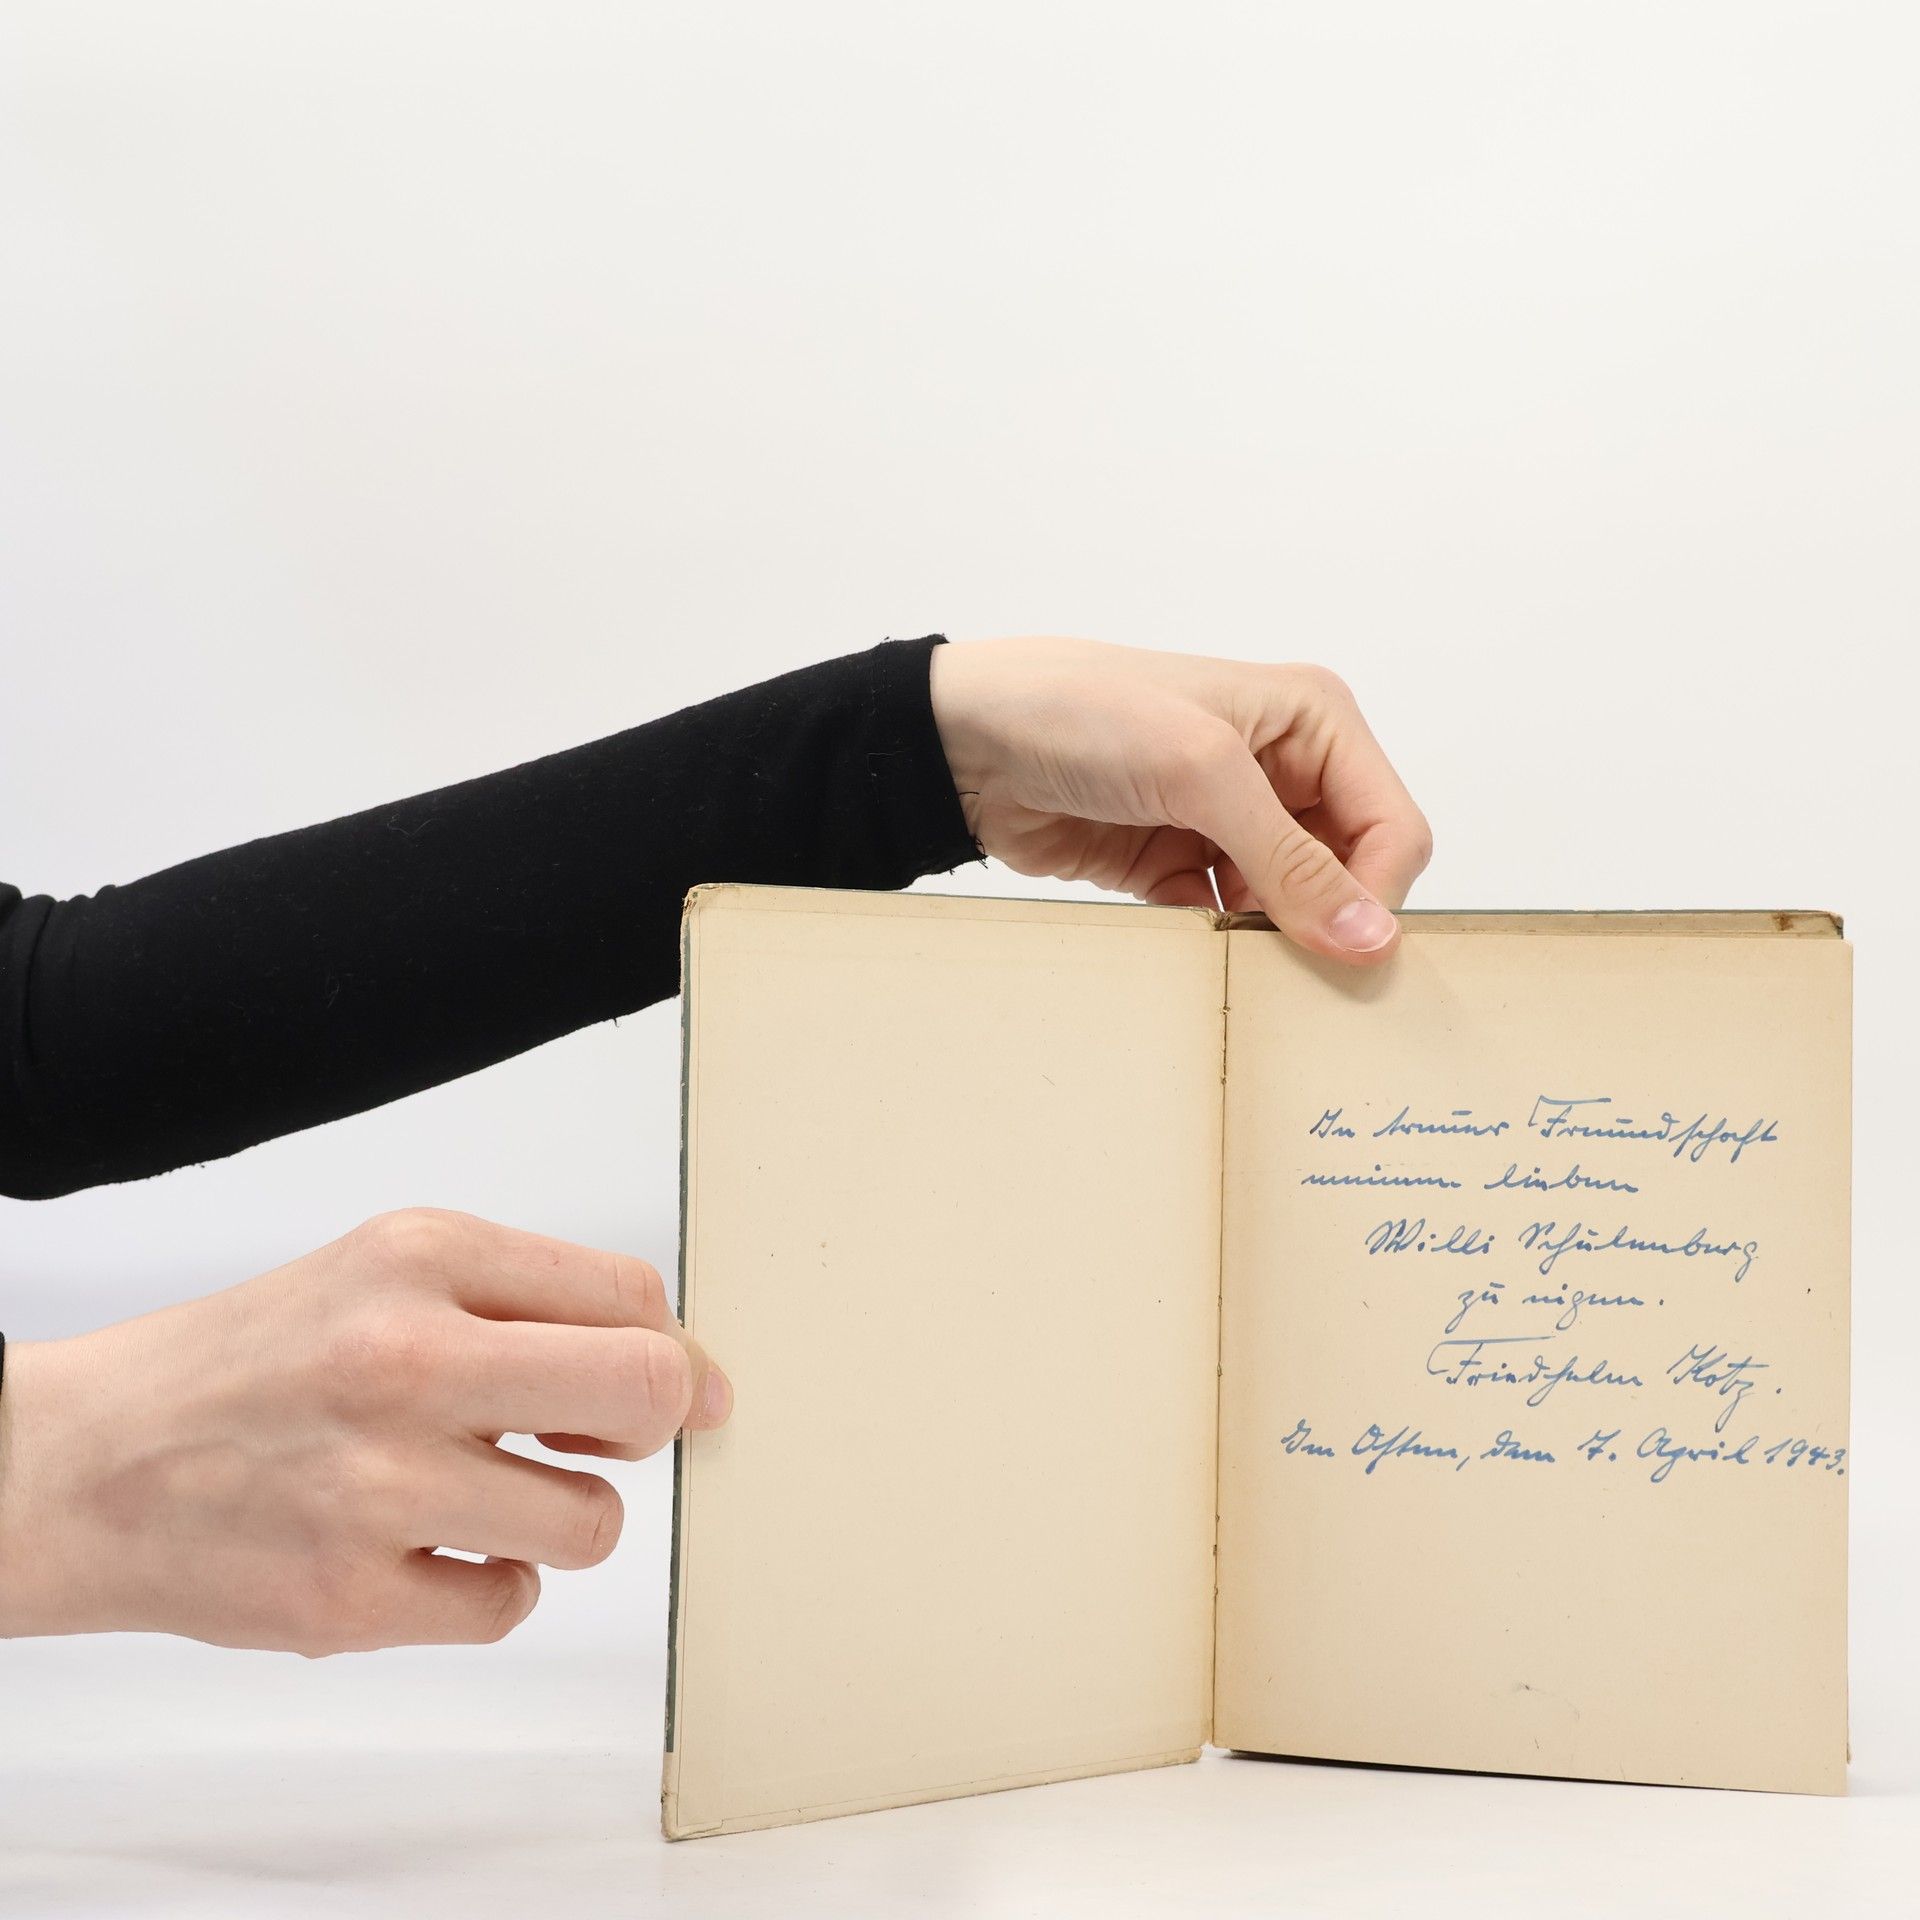 In treuer Freundschaft
meinem lieben
Willi Schulenburg
zu eigen.
Friedhelm Kotz.
Im Osten, den 7. April 1943.